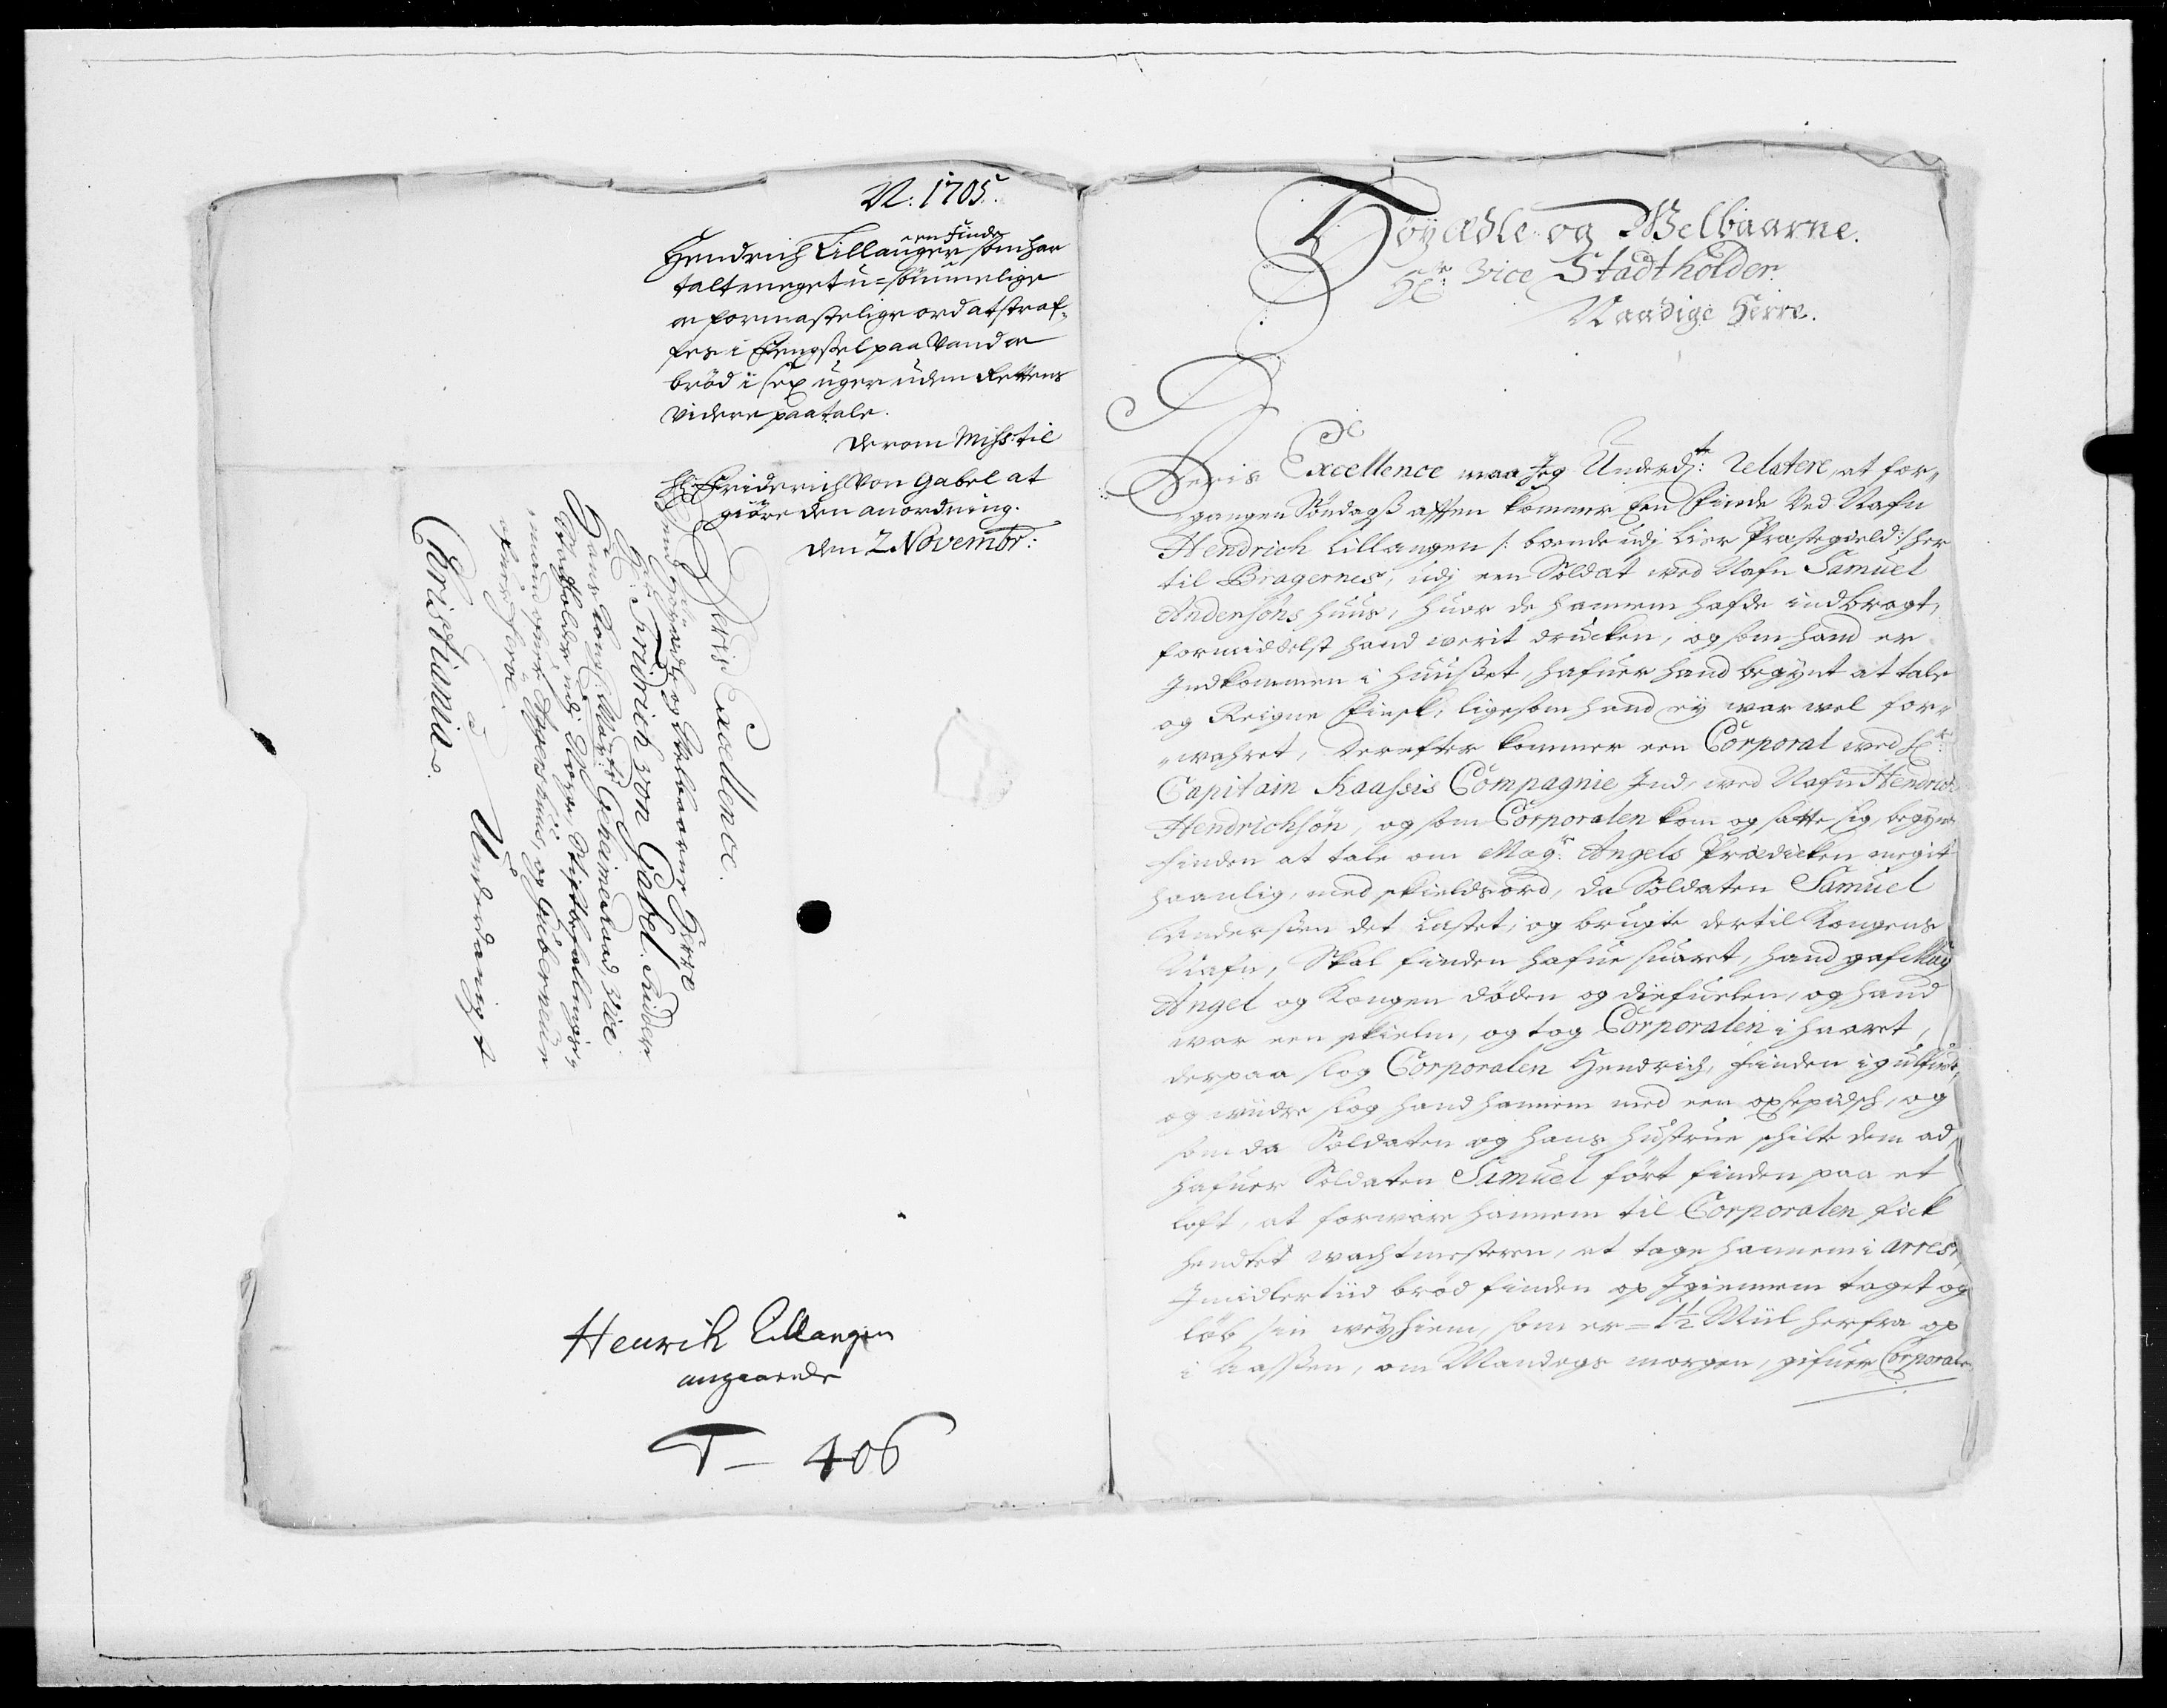 N: 1705.
een Finde
Hendrich Lillangen som har
talt meget u=sömmelige
oc formastelige ord at straf-
fes i Fengssel paa Vand oc
bröd i sex uger uden Rettens
videre paatale.
Derom Miss: til
Hr: Friderich Von Gabel at
giöre den anordning.
Den 2 Novembr:
Deris Excellence.
Höyædle og Velbaarne Herre
Hr: Friderich von Gabel. Ridder.
Hans Kong: May:ts Geheimeraad, Vice
Stadtholder udj Norge, Stiftbefallings
mand ofver Aggershuus, og Guberneur
ofver
a
Christiania.
Underdanigst
Henrik Lillangen
angaaende
T – 406
Höyædle og Welbaarne.
Hr: Vice Stadtholder
Naadige Herre.
Deris Excellence maa Jeg Underd:te relatere, at for-
gangen Söndagß afften kommer Een Finde Ved Nafn
Hendrich Lillangen /: boende udj Lier Præstegield :/ her
til Bragernes, udj een Soldat ved Nafn Samuel
Andersöns huus, huor de hannem hafde indbragt,
formiddelst hand verit drucken, og som hand er
Indkommen i huusset, hafuer hand begynt at tale
og Reigne Finsk, ligesom hand ey war wel for-
wahret, derefter kommer een Corporal ved Hr:
Capitain Kaassis Compagnie Ind, ved Nafn Hendrich
Hendrichsön, og som Corporalen kom og satte sig, begynte
Finden at tale om Mag:r Angels Prædicken megit
haanlig, med skieldsord, da Soldaten Samuel
Andersen det lastet, og brugte dertil Kongens
Nafn, Skal Finden hafue suaret, hand gaf Mag
Angel og Kongen döden og diefuelen, og hand
war een skielm, og tog Corporalen i haaret,
derpaa slog Corporalen Hendrich, Finden i gulfuet,
og widre slog hand hannem med een , og
som da Soldaten og hans hustrue skilte dem ad,
hafuer Soldaten Samuel fört Finden paa et
loft, at forware hannem til Corporalen fick
hendtet wachtmesteren, at tage hannem i arrest,
Imidlertiid bröd Finden op Igiennem taget og
löb sin wey hiem, som er = 1½ Miil herfra op
i Aassen, om Mandags morgen, gifuer Corporalen